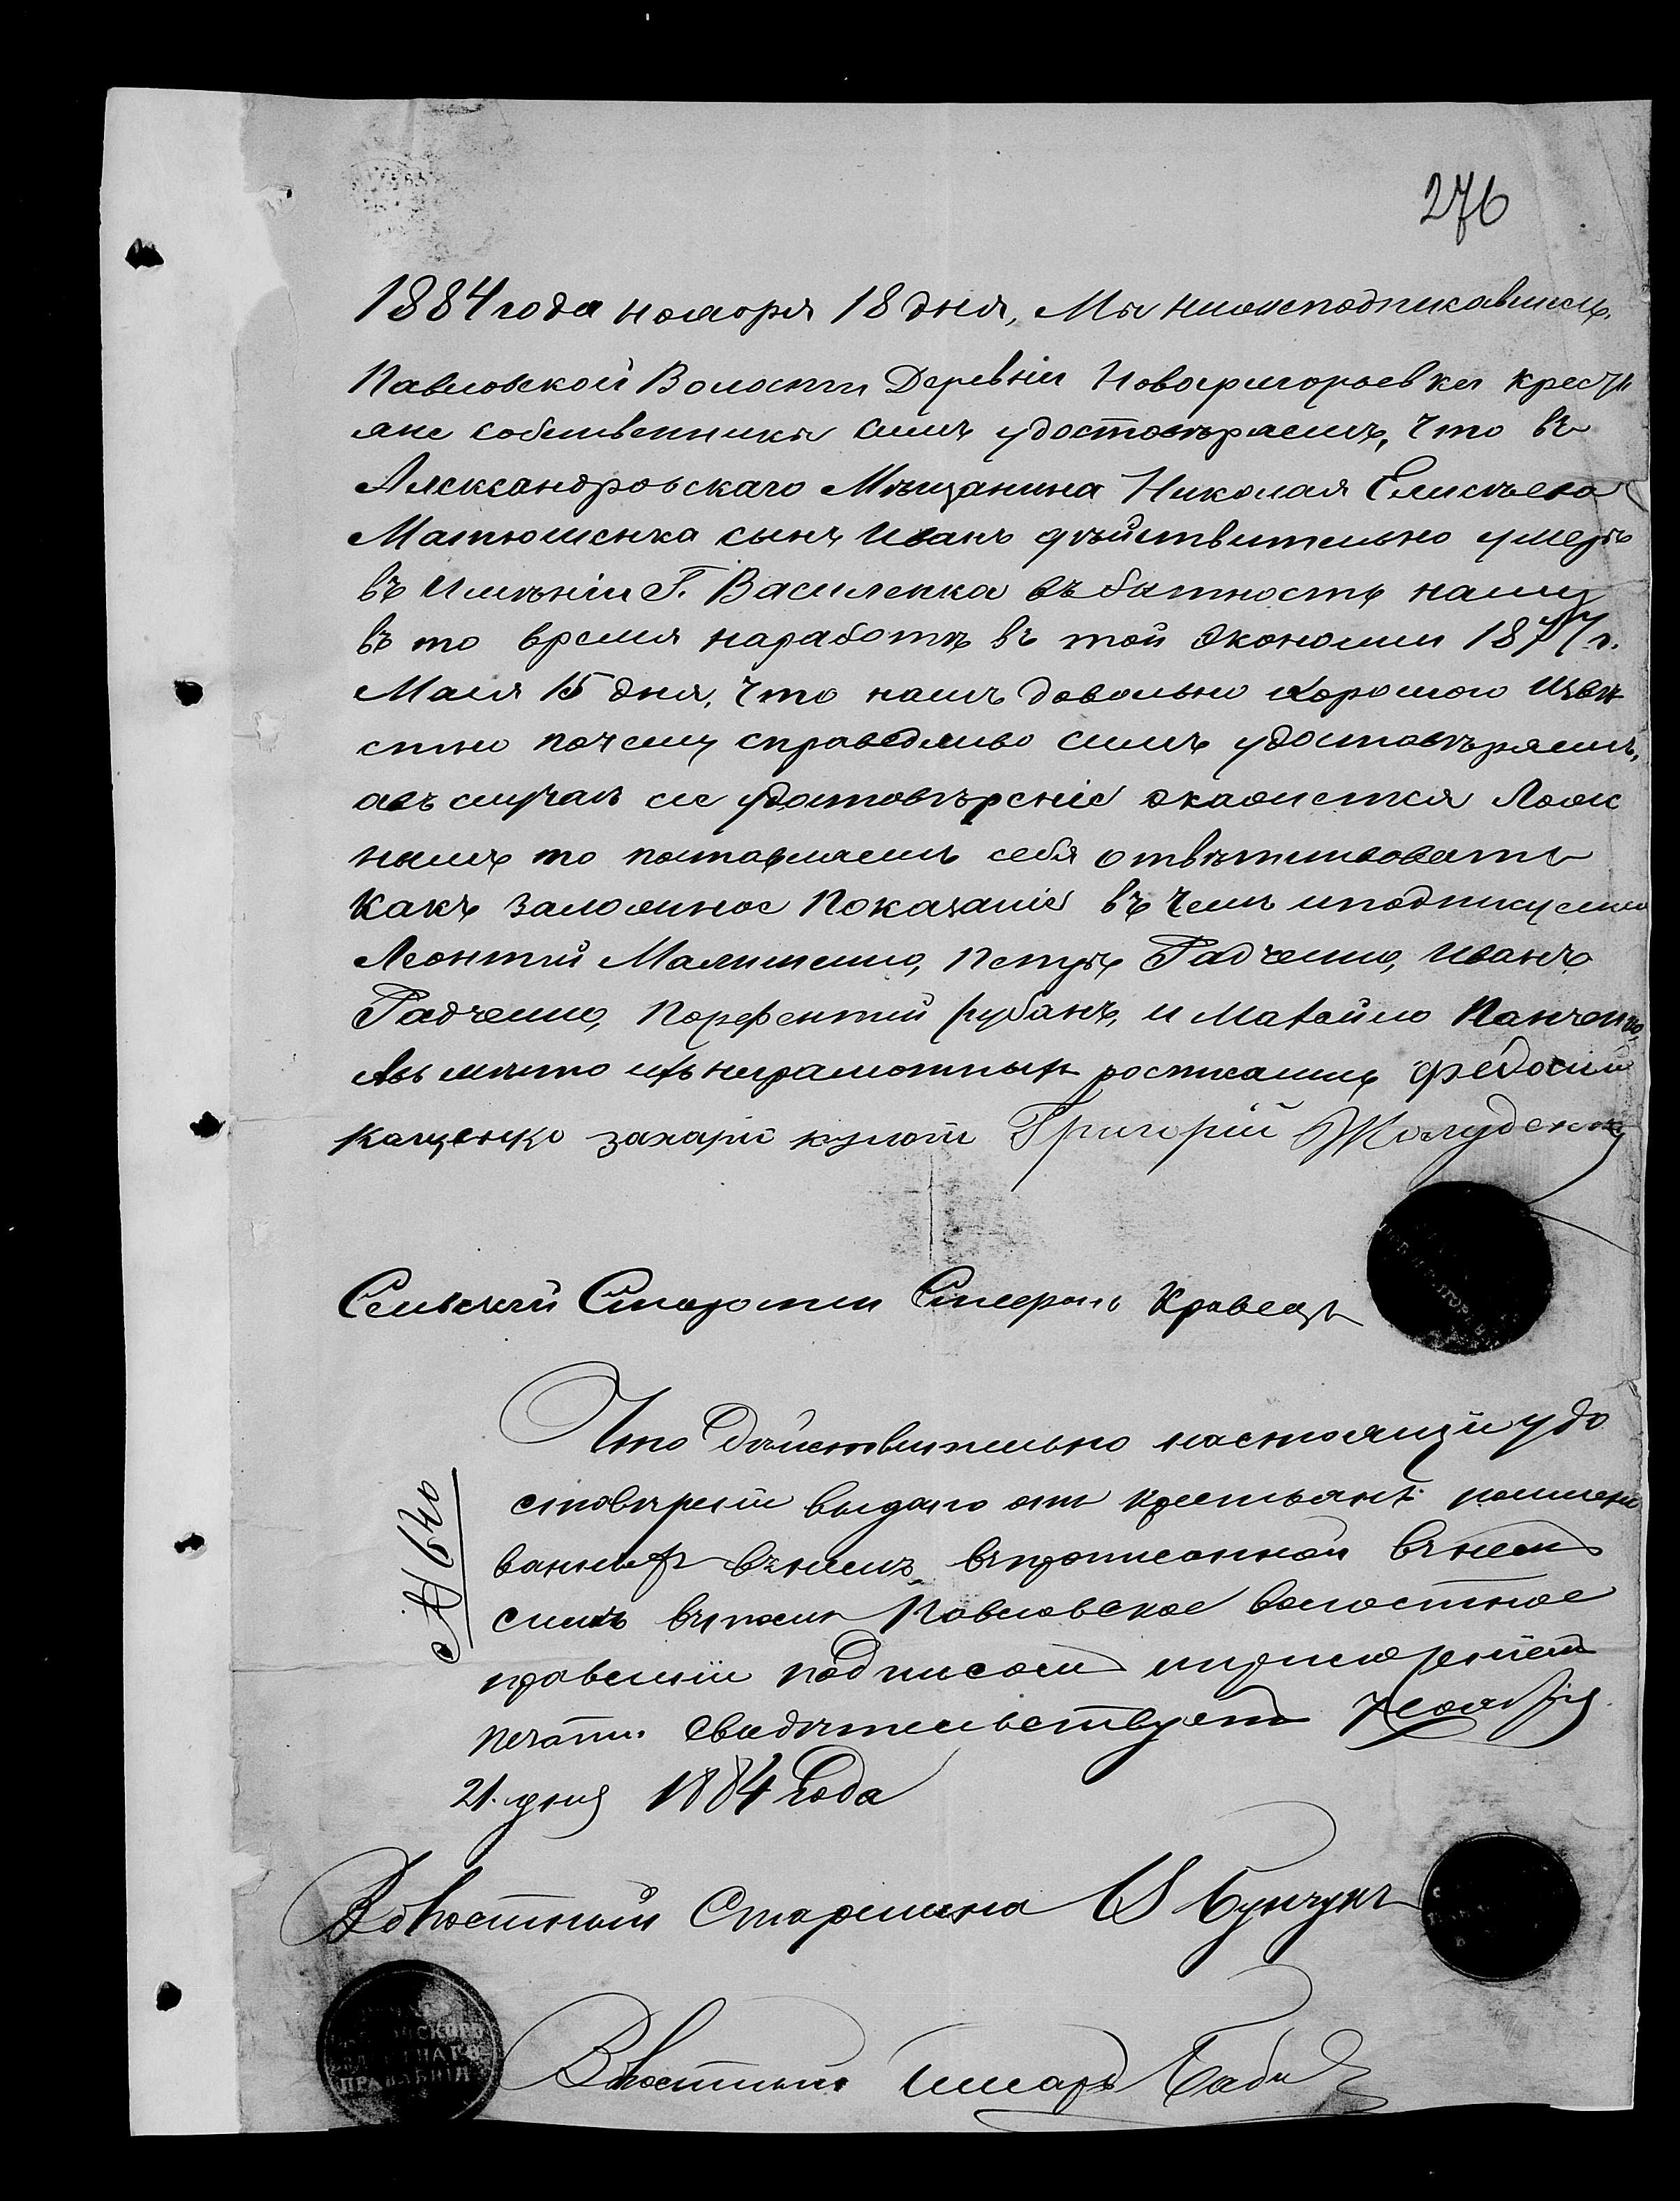 276
1884 года ноября 18 дня, Мы нижеподписавшиесь
Павловской Волости Деревни Новогригорьевки крестья
яне собственники симъ удостовѣряемъ, что въ
Александровскаго Мѣщанина Николая Елисѣева
Матюшенка сынъ Иванъ дѣйствительно умеръ
въ Имѣніи Г. Василенка въ бытность нашу
въ то время наработѣ въ той Экономіи 1877 г.
Маія 15 дня, что намъ довольно хорошо извѣ
стно почему справедливо симъ удостовѣряемъ,
авъ случаѣ се удостовѣреніе окажется Лож
нымъ то поставляемъ себя отвѣтствовать
какъ заложиное Показаніе въ чемъ иподписуемся
Леонтій Малышенко, Петръ Радченко, Иванъ
Радченко, Порфентій рубанъ, и Махайло Панченко,
Авмѣсто ихъ неграмотныхъ росписались Федосий
Кащенко захарій кулиш Григорій Жолуденко
Сельскій Староста Стефанъ Кравецъ
Что Дѣйствительно настоящіи удо
стовѣреніи выдано отъ крестьянъ поимено
ванныхъ внемъ впрописанной внемъ
силѣ втомъ Павловское волостное
правленіи подписомъ иприложеніемъ
печати свидѣтельствуетъ Ноября
21. дня 1884 Года
№ 640
Волостный Старшина Бунчукъ
Волостный писарь
ПРАВЛЕНІЯ